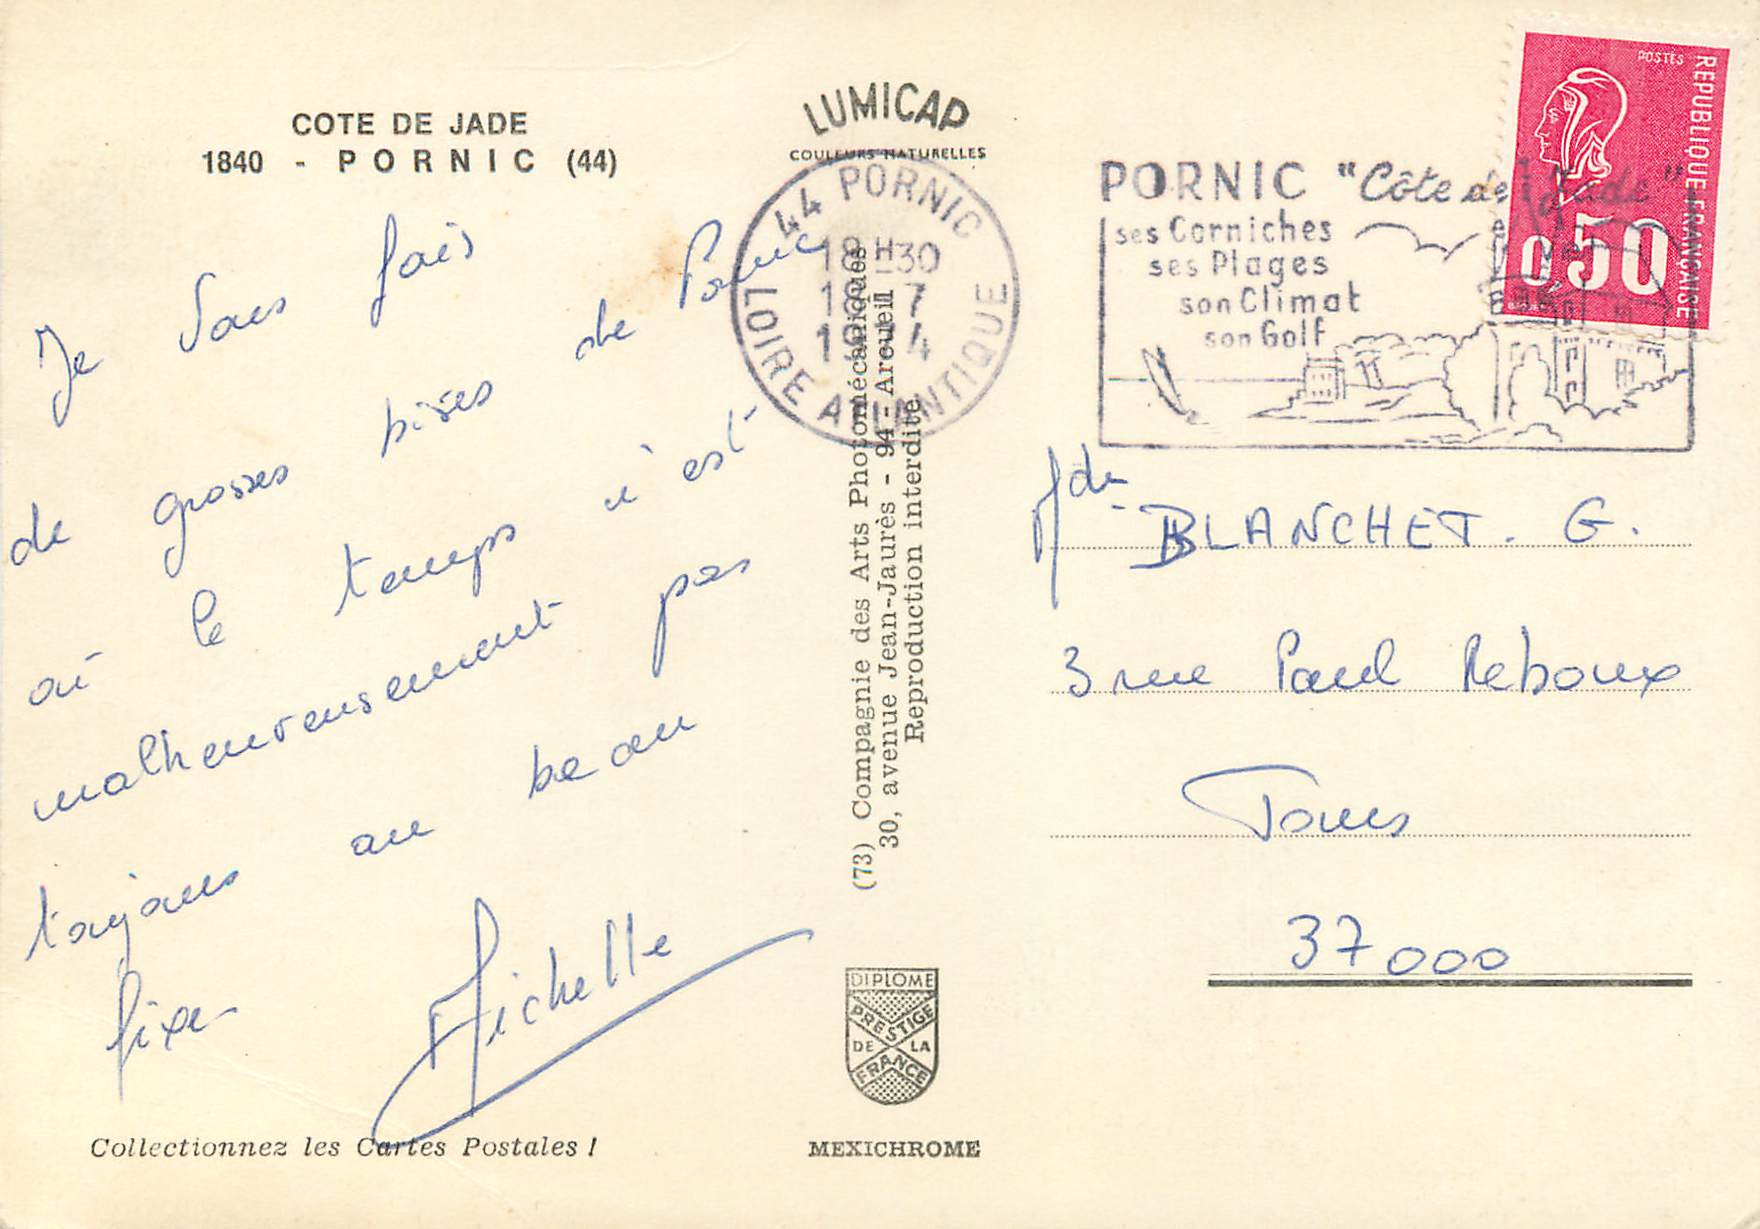 COTE DE JADE
1840 - PORNIC (44)
Je vous fais
de grosses bises de Pornic
où le temps n'est
malheureusement pas
toujours au beau
fixe
Michelle
Collectionnez les Cartes Postales !
LUMICAP
COULEURS NATURELLES
44 PORNIC
18H30
7
LOIRE ATLANTIQUE
(73) Compagnie des Arts Photomécaniques
30, avenue Jean-Jaurès - 94 - Arcueil
Reproduction interdite
DIPLOME
PRESTIGE
DE LA
FRANCE
MEXICHROME
PORNIC "Côte de Jade"
ses Corniches
ses Plages
son Climat
son Golf
POSTES
REPUBLIQUE FRANÇAISE
0,50
BLANCHET. G.
3 rue Paul Reboux
Tours
37000